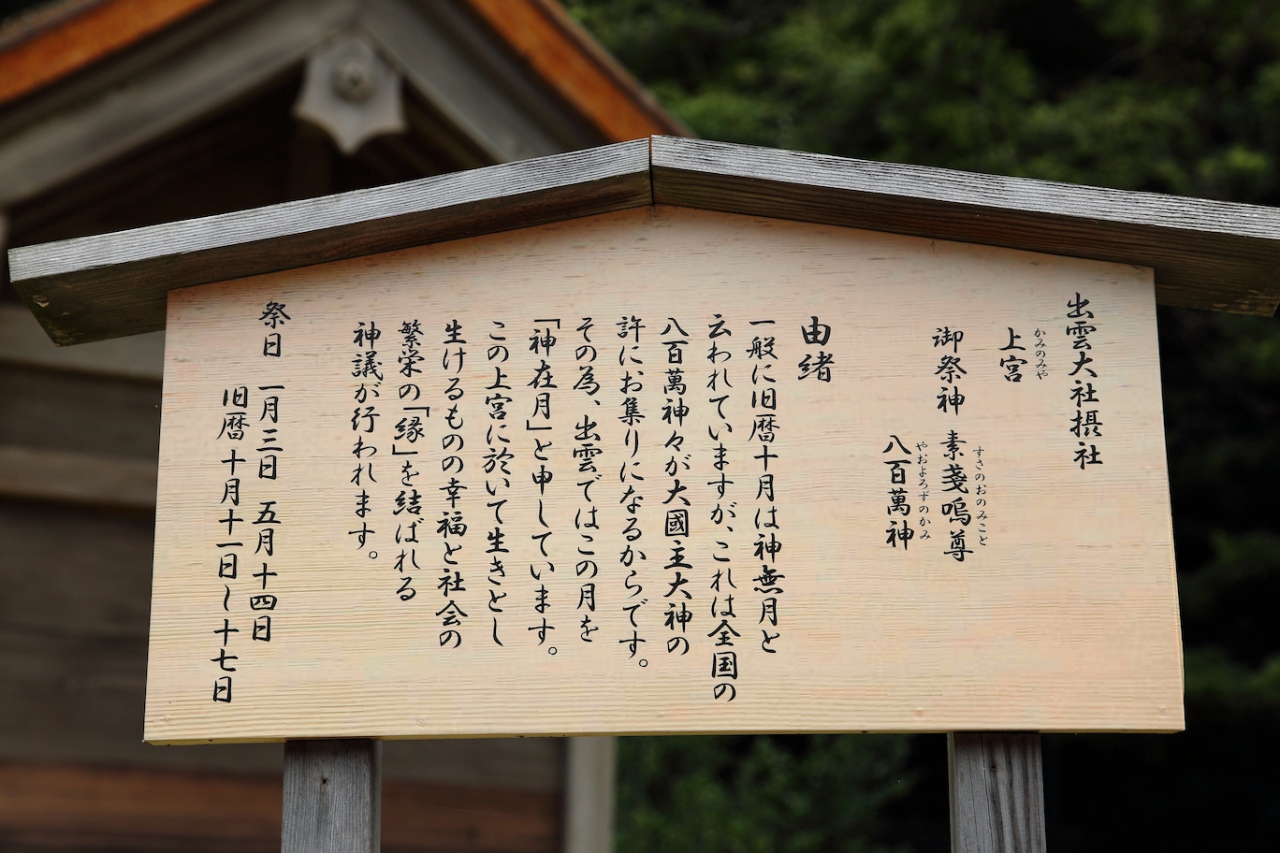 出雲大社摂社
かみのみや
上宮
すさのおのみこと
御祭神 素戔嗚尊
やおよろずのかみ
八百萬神
由緒
一般に旧暦十月は神無月と
云われていますが、これは全国の
八百萬神々が大國主大神の
許にお集りになるからです。
その為、出雲ではこの月を
「神在月」と申しています。
この上宮に於いて生きとし
生けるものの幸福と社会の
繁栄の「縁」を結ばれる
神議が行われます。
祭日 一月三日 五月十四日
旧暦 十月十一日~十七日